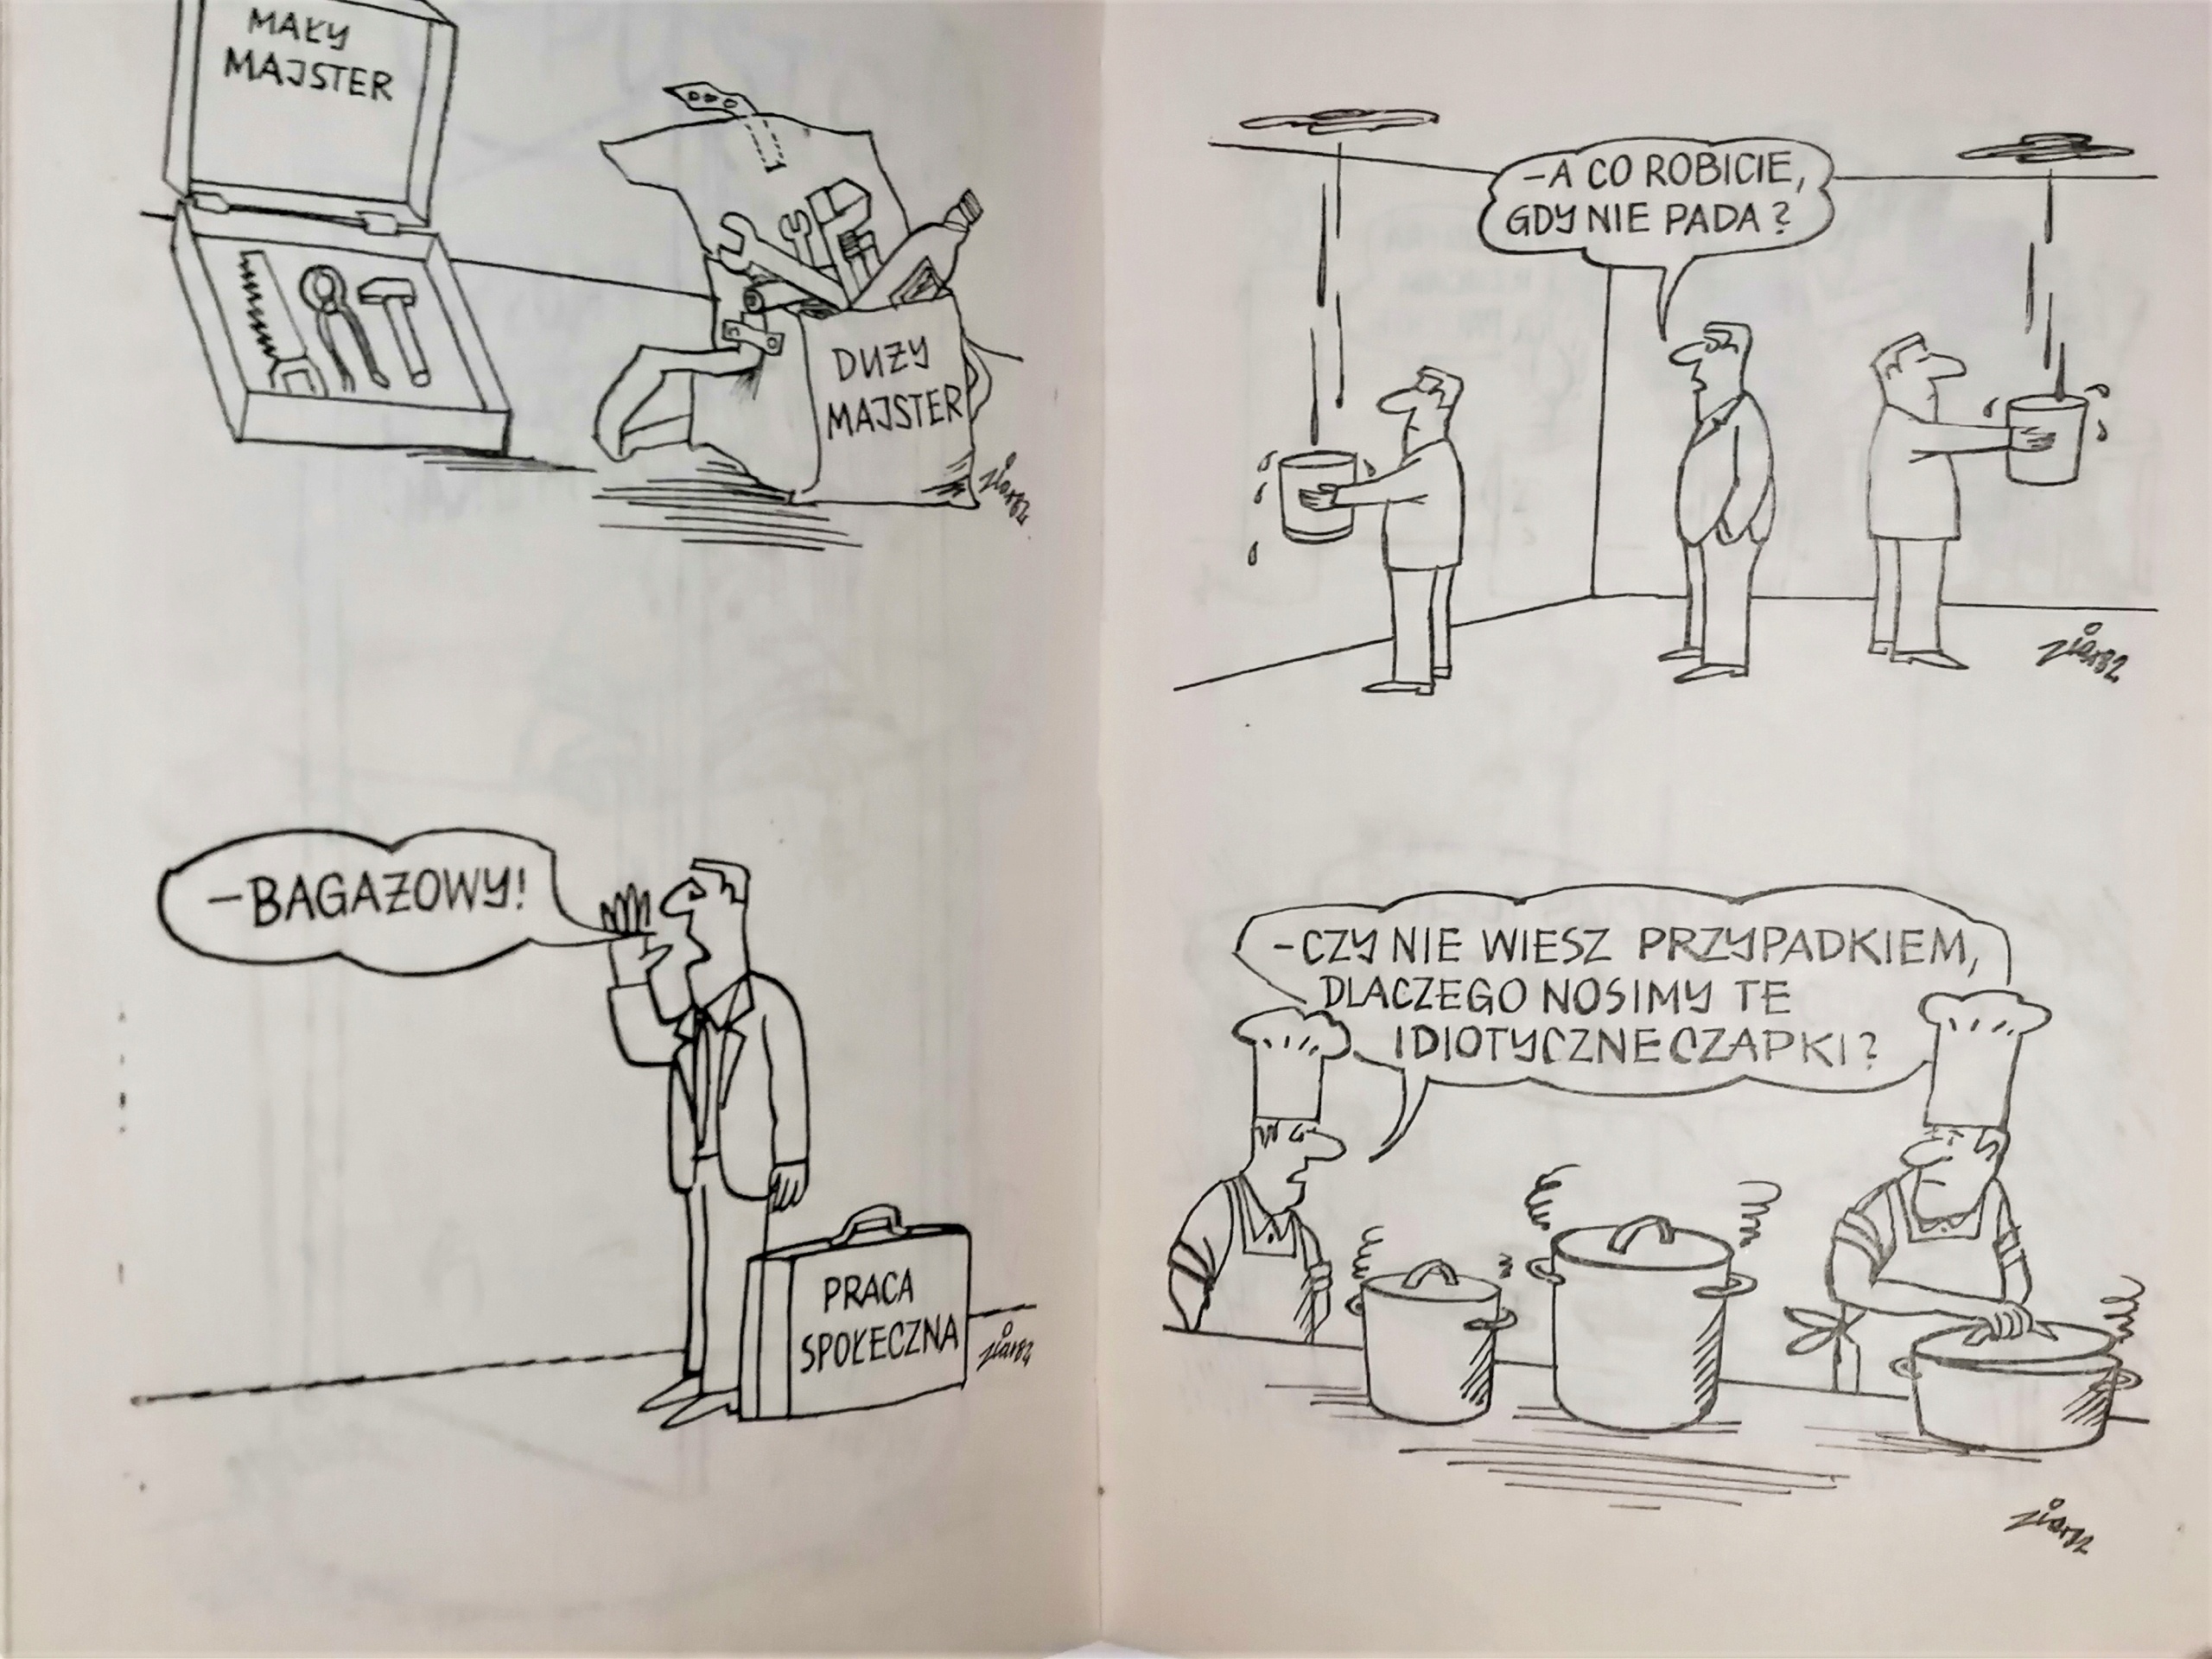 MAŁY
MAJSTER
DUŻY
MAJSTER
ziar82
-BAGAŻOWY!
PRACA
SPOŁECZNA
ziar82
-A CO ROBICIE,
GDY NIE PADA?
ziar82
-CZY NIE WIESZ PRZYPADKIEM,
DLACZEGO NOSIMY TE
IDIOTYCZNE CZAPKI?
ziar82